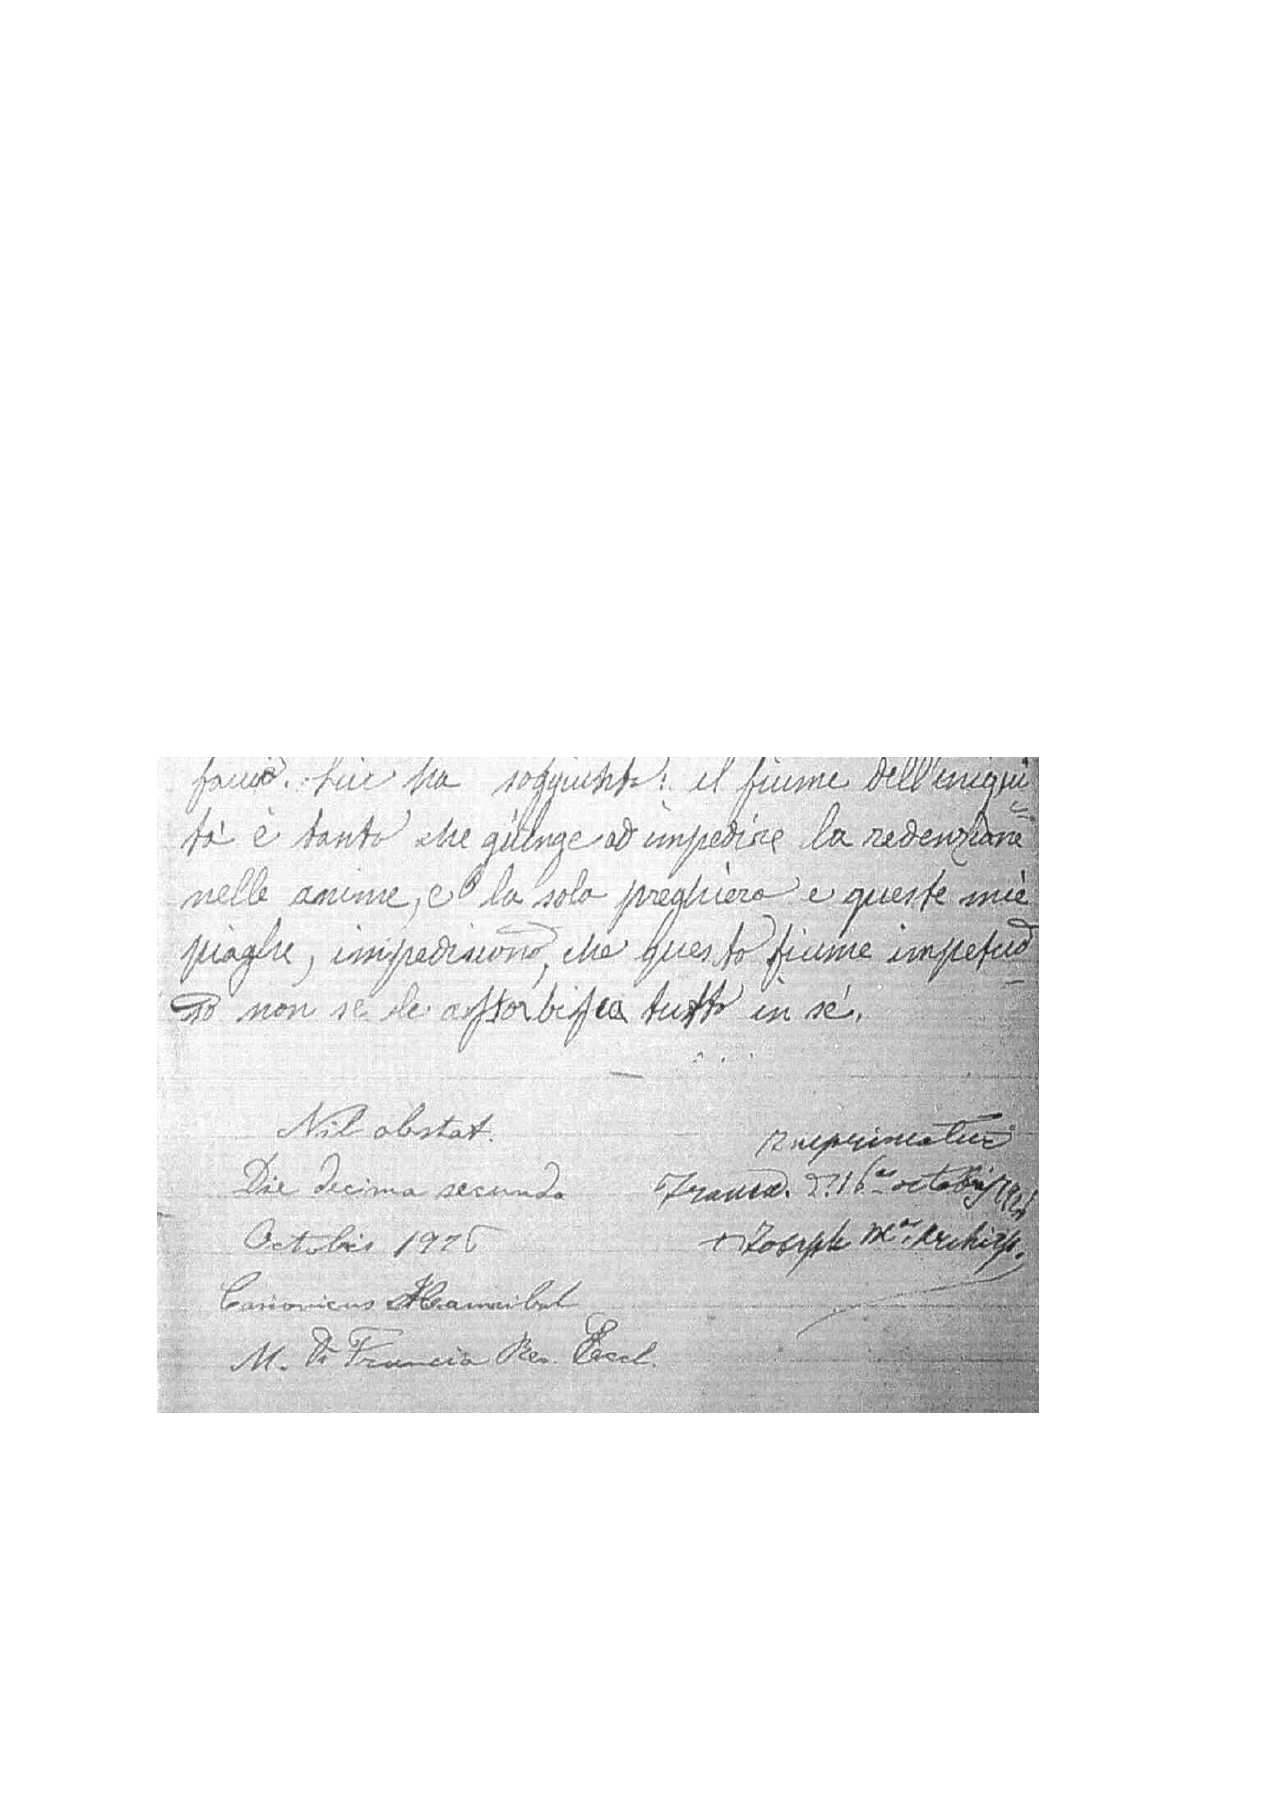 ha soggiunto: il fiume dell'iniqui=
tà è tanto che giunge ad impedire la redenzione
nelle anime, e la sola preghiera e queste mie
piaghe, impediscono, che questo fiume impetuo=
so non se le assorbisca tutto in sé.
Nil obstat.
Die decima secunda
Octobris 1926
Canonicus Hannibal
M. Di Francia Rev. Eccl.
Imprimatur
16 octobris 1926
+ Joseph Mª Archiep.